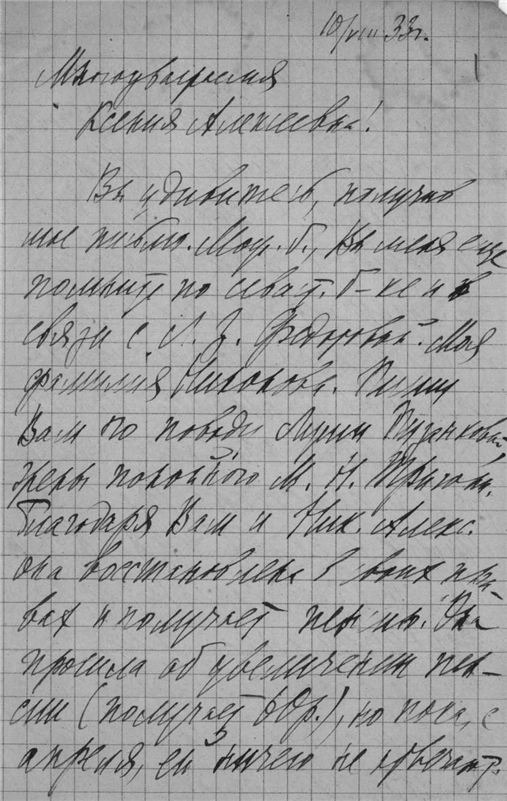 10/VIII 33г.
Многоуважаемая
Ксения Алексеевна!
Вы удивитесь, получив
мое письмо. Мож. б., Вы меня еще
помните по севаст. б-ке и в
связи с Л. З. Федоровой. Моя
фамилия Пишу
Вам по поводу
покойного М. Н.
Благодаря Вам и Ник. Алекс.
она восстановлена в своих пра-
вах и получает пенсию. Она
просила об увеличении пен-
сии (получает 60р.), но пока, с
апреля, ей ничего не отвечают.